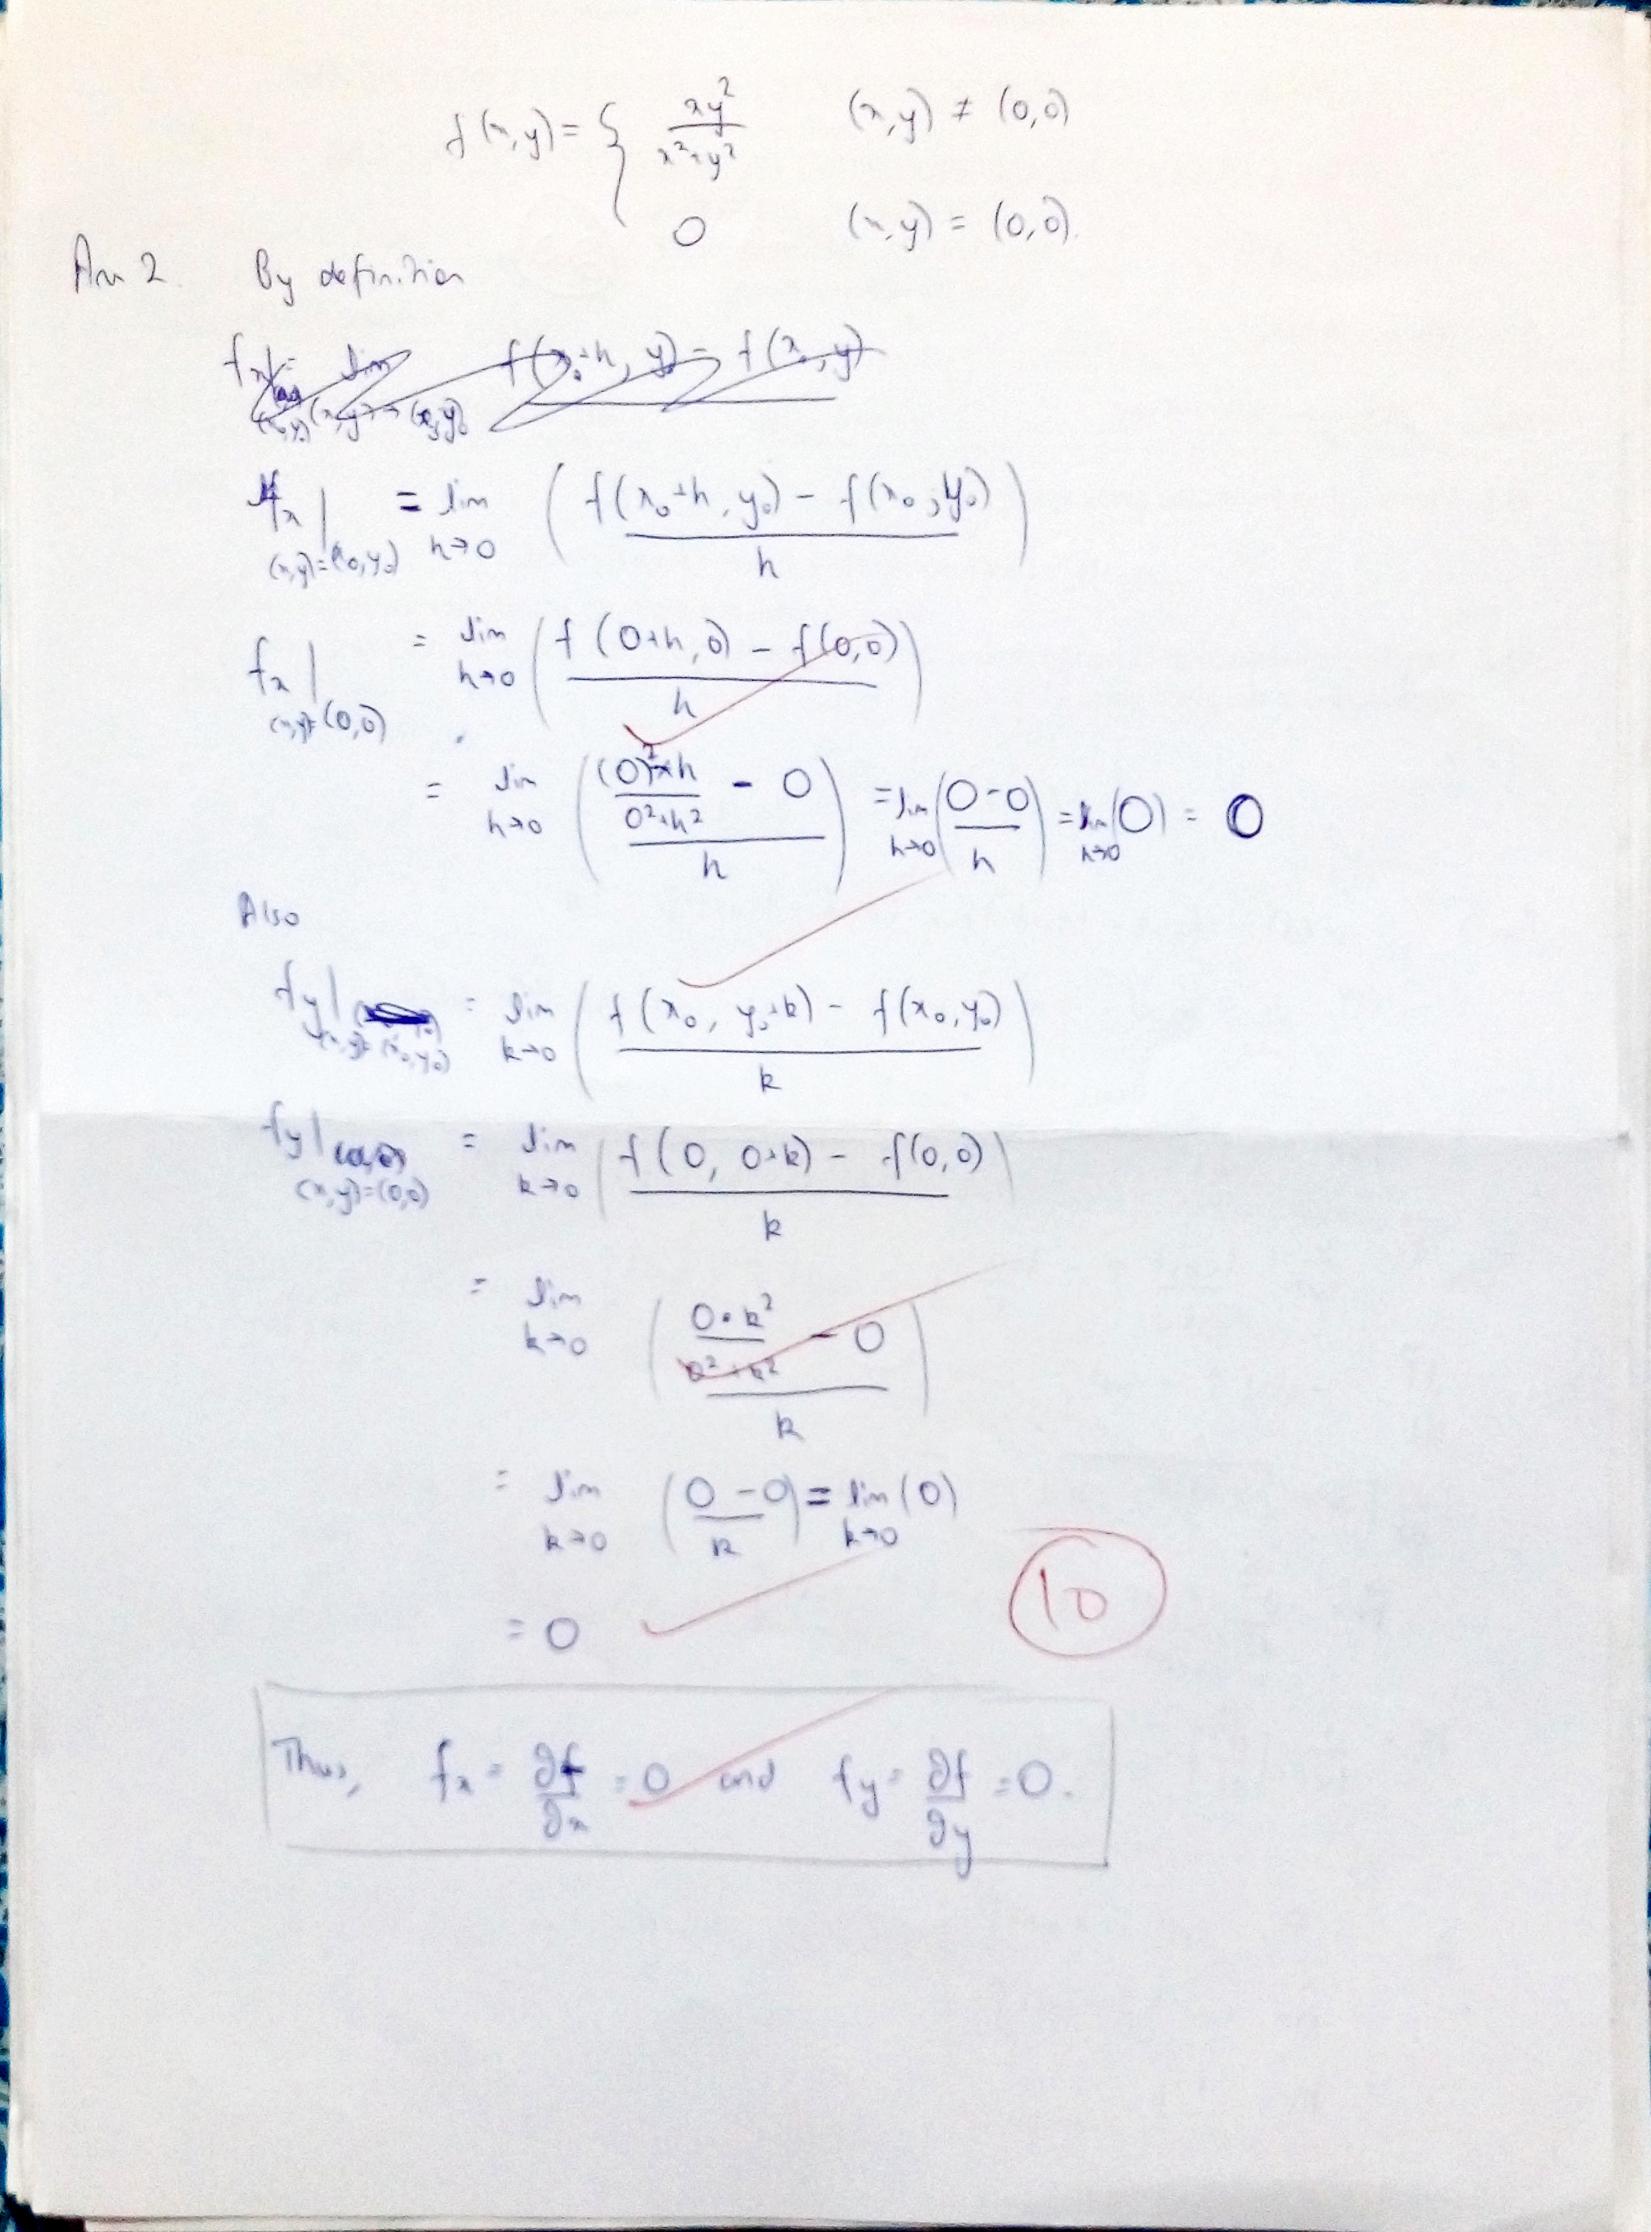 f(x,y) = { xy²/(x²+y²) (x,y) ≠ (0,0)
0 (x,y) = (0,0).
Ans 2. By definition
fx|(x,y)=(x₀,y₀) = lim h→0 ( (f(x₀+h, y₀) - f(x₀,y₀))/h )
fx|(x,y)=(0,0) = lim h→0 ( (f(0+h,0) - f(0,0))/h )
= lim h→0 ( ((0)²×h/(0²+h²) - 0)/h ) = lim h→0 ( (0-0)/h ) = lim h→0 (0) = 0
Also
fy|(x,y)=(x₀,y₀) = lim k→0 ( (f(x₀, y₀+k) - f(x₀,y₀))/k )
fy|(x,y)=(0,0) = lim k→0 ( (f(0, 0+k) - f(0,0))/k )
= lim k→0 ( (0·k²/(0²+k²) - 0)/k )
= lim k→0 ( (0-0)/k ) = lim k→0 (0)
10
= 0
Thus, fx = ∂f/∂x = 0 and fy = ∂f/∂y = 0.